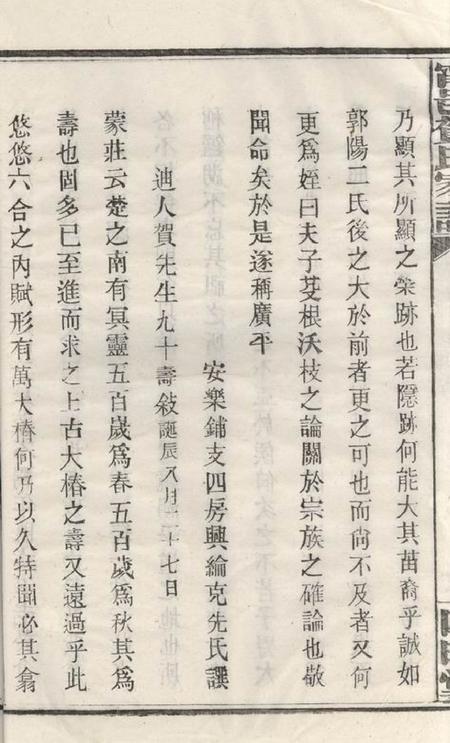 乃顯其所顯之榮跡也若隱跡何能大其苗裔乎誠如
郭陽二氏後之大於前者更之可也而尙不及者又何
更爲姪曰夫子茇根沃枝之論關於宗族之確論也敬
聞命矣於是遂稱廣平
安樂鋪支四房興綸克先氏譔
迪人賀先生九十壽敍誕辰八月二十七日
蒙莊云楚之南有冥靈五百歲爲春五百歲爲秋其爲
壽也固多已至進而求之上古大椿之壽又遠過乎此
悠悠六合之內賦形有萬大椿何乃以久特聞必其翕